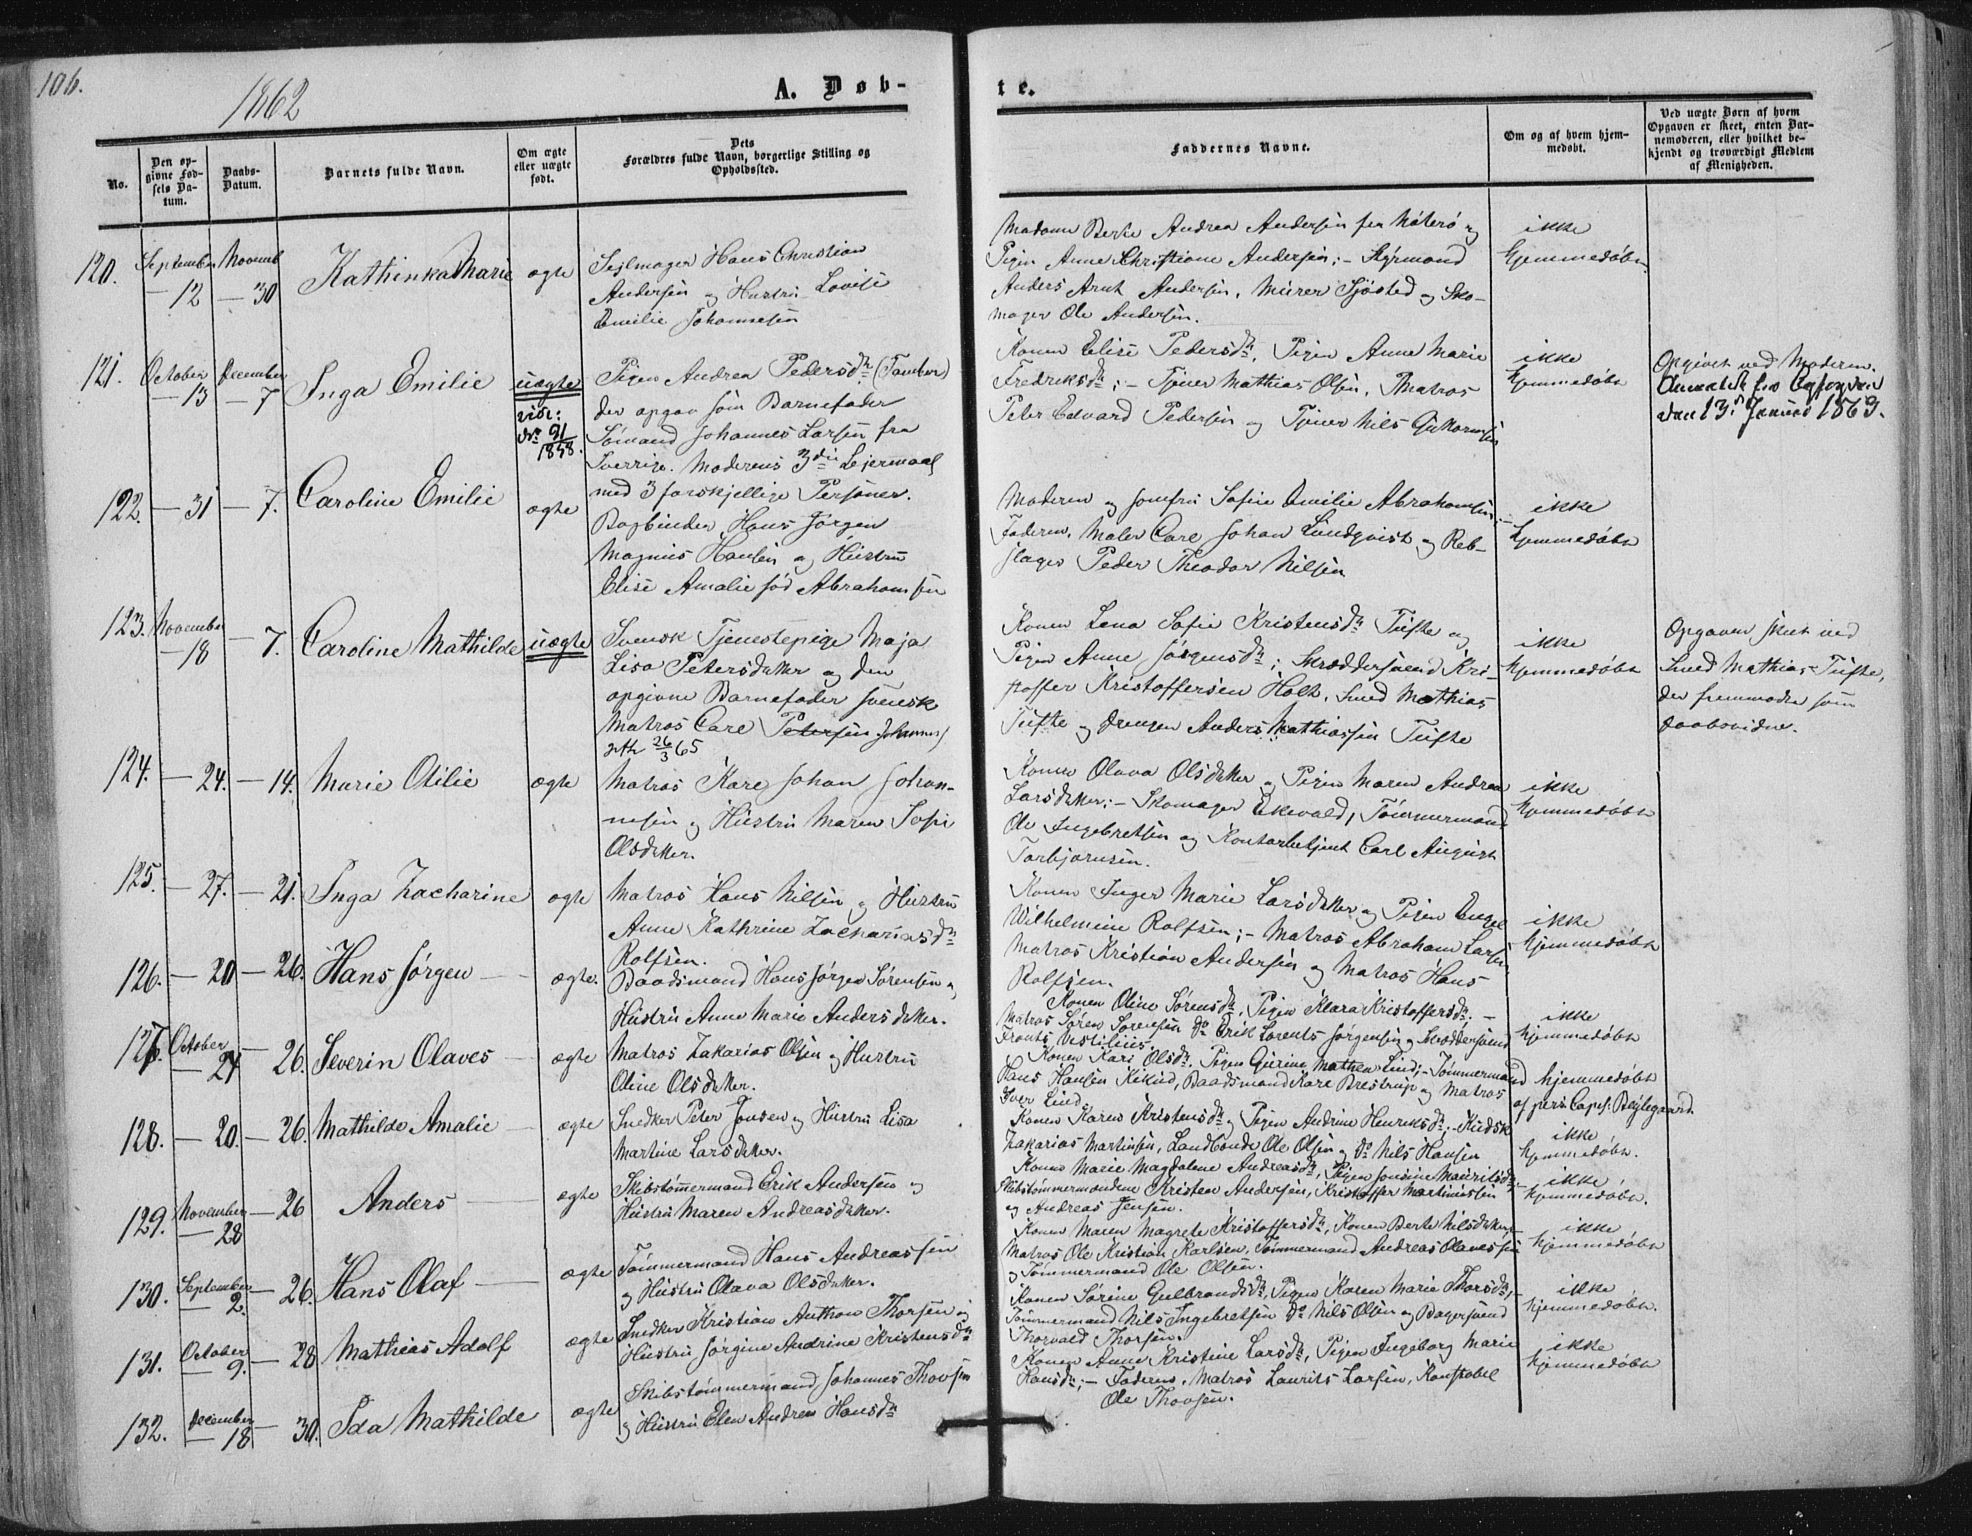 106.
1862
A. Døb-
te.
No.
Den op-
givne Fød-
sels Da-
tum.
Daabs-
Datum.
Barnets fulde Navn.
Om ægte
eller uægte
født.
Dets
Forældres fulde Navn, borgerlige Stilling og
Opholdssted.
Faddernes Navne.
Om og af hvem hjem-
medøbt.
Ved uægte Børn af hvem
Opgaven er skeet, enten Bar-
nemoderen, eller hvilket be-
kjendt og troværdigt Medlem
af Menigheden.
120.
September
— 12
Novemb
— 30
Kathinka Marie
ægte
Sejlmager Hans Christian
Andersen og Hustru Lovise
Emilie Johannesen
Madame Berte Andrea Andersen fra Nøterø og
Pigen Anne Christiane Andersen; – Styrmand
Anders Arnt Andersen, Murer Sjøsted og Sko-
mager Ole Andersen.
ikke
hjemmedøbt
121.
October
— 13
December
— 7
Inga Emilie
uægte
vide:
No 91
1858.
Pigen Andrea Pedersdr (Tomber)
der opgav som Barnefader
Sømand Johannes Larsen fra
Sverrige. Moderens 3die Lejermaal
med 3 forskjellige Personer.
Konen Elise Pedersdr, Pigen Anne Marie
Fredriksdr; – Tjener Mathias Olsen, Matros
Peter Edvard Pedersen og Tjener Nils
ikke
hjemmedøbt
Opgivet ved Moderen.
den 13de Januar 1863.
122.
— 31
— 7.
Caroline Emilie
ægte
Bogbinder Hans Jørgen
Magnus Hansen og Hustru
Elise Amalie fød Abrahamsen
Moderen og Jomfru Sofie Emilie Abrahamsen; –
Faderen, Maler Carl Johan Lundqvist og Reb-
slager Peder Theodor Nilsen
ikke
hjemmedøbt
123.
November
— 18
— 7.
Caroline Mathilde
uægte
Svensk Tjenestepige Maja
Lisa Petersdatter og den
opgivne Barnefader svensk
Matros Carl Petersen Johannes
26/3 65
Konen Lena Sofie Kristensdr Tufte og
Pigen Anne Jørgensdr; Skræddersvend Kri-
stoffer Kristoffersen Holt, Smed Mathias
Tufte og Drengen Anders Mathiassen Tufte
ikke
hjemmedøbt
Opgaven skeet ved
Smed Mathias Tufte,
der fremmødte som
Daabsvidne.
124.
— 24.
— 14.
Marie Otilie
ægte
Matros Karl Johan Johan-
nesen og Hustru Maren Sofie
Olsdatter.
Konen Olava Olsdatter og Pigen Maren Andrea
Larsdatter; – Skomager Ekevald, Tømmermand
Ole Ingebretsen og Kontorbetjent Carl August
Torbjørnsen.
ikke
hjemmedøbt
125.
— 27.
— 21.
Inga Zacharine
ægte
Matros Hans Nilsen og Hustru
Anne Kathrine Zachariasdr
Rolfsen.
Konen Inger Marie Larsdatter og Pigen Engel
Wilhelmine Rolfsen; – Matros Abraham Larsen
Matros Kristian Andersen og Matros Hans
Rolfsen.
ikke
hjemmedøbt
126.
— 20
— 26.
Hans Jørgen
ægte.
Baadsmand Hans Jørgen Sørensen og
Hustru Anne Marie Andersdatter.
Konen Oline Sørensdr, Pigen Klara Kristoffersdr. –
Matros Søren Sørensen, do Erik Lorents Jørgensen og Skræddersvend
Frants Vestilius.
ikke
hjemmedøbt
127.
October
— 24
— 26.
Severin Olaves
ægte
Matros Zakarias Olsen og Hustru
Oline Olsdatter.
Konen Kari Olsdr, Pigen Gurine Mathea Lind; – Tømmermand
Hans Hansen Kikud, Baadsmand Karl Brestrup og Matros
Iver Lind.
hjemmedøbt
af pers. Capel. Bejlegaard.
128.
— 20.
— 26.
Mathilde Amalie
ægte
Snedker Peter Jonsen og Hustru Lisa
Martine Larsdatter.
Konen Karen Kristensdr og Pigen Andrine Henriksdr; – Kudsk
Zakarias Martinsen, Landbonde Ole Olsen og do Nils Hansen
ikke
hjemmedøbt.
129.
November
— 28
— 26
Anders
ægte
Skibstømmermand Erik Andersen og
Hustru Maren Andreasdatter.
Konen Marie Magdalene Andreasdr, Pigen Josine Mauritsdr –
Skibstømmermændene Kristen Andersen, Kristoffer Martinussen
og Andreas Jensen.
ikke
hjemmedøbt.
130.
September
— 2.
— 26.
Hans Olaf
ægte
Tømmermand Hans Andreassen
og Hustru Olava Olsdatter.
Konen Maren Magrete Kristoffersdr, Konen Berte Nilsdatter, –
Matros Ole Kristian Karlsen, Tømmermand Andreas Olavessen
og Tømmermand Ole Olsen.
ikke
hjemmedøbt
131.
October
— 9.
— 28
Mathias Adolf
ægte
Snedker Kristian Anthon Thorsen og
Hustru Jørgine Andrine Kristensdr
Konen Sørine Gulbrandsdr, Pigen Karen Marie Thorsdr, –
Tømmermand Nils Ingebretsen do Nils Olsen og Bagersvend
Thorvald Thorsen.
ikke
hjemmedøbt.
132.
December
— 18
— 30.
Ida Mathilde
ægte
Skibstømmermand Johannes Thovsen
og Hustru Elen Andrea Hansdr
Konen Anne Kristine Larsdr, Pigen Ingeborg Marie
Hansdr; – Faderen, Matros Laurits Larsen, Konstabel
Ole Thovsen.
ikke
hjemmedøbt